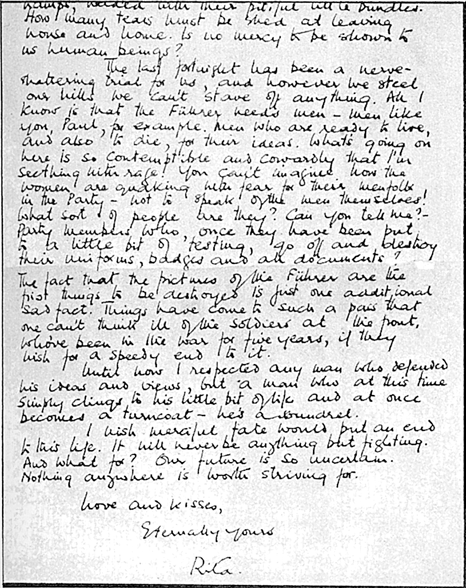 with their pitiful little bundles.
How many tears must be shed at leaving
house and home. Is no mercy to be shown to
us human beings?
The last fortnight has been a nerve-
shattering trial for us, and however we steel
our wills we can't stave off anything. All I
know is that the Führer needs men - men like
you, Paul, for example. Men who are ready to live,
and also to die, for their ideas. What's going on
here is so contemptible and cowardly that I'm
seething with rage! You can't imagine how the
women are quaking with fear for their menfolk
in the Party - not to speak of the men themselves!
What sort of people are they? Can you tell me? -
Party members who, once they have been put
to a little bit of testing, go off and destroy
their uniforms, badges and all documents?
The fact that the pictures of the Führer are the
first things to be destroyed is just one additional
sad fact. Things have come to such a pass that
one can't think ill of the soldiers at the front,
who've been in the war for five years, if they
wish for a speedy end to it.
Until now I respected any man who defended
his ideas and views, but a man who at this time
simply clings to his little bit of life and at once
becomes a turncoat - he's a scoundrel.
I wish merciful fate would put an end
to this life. It will never be anything but fighting.
And what for? Our future is so uncertain.
Nothing anywhere is worth striving for.
Love and kisses,
Eternally yours
Rita.